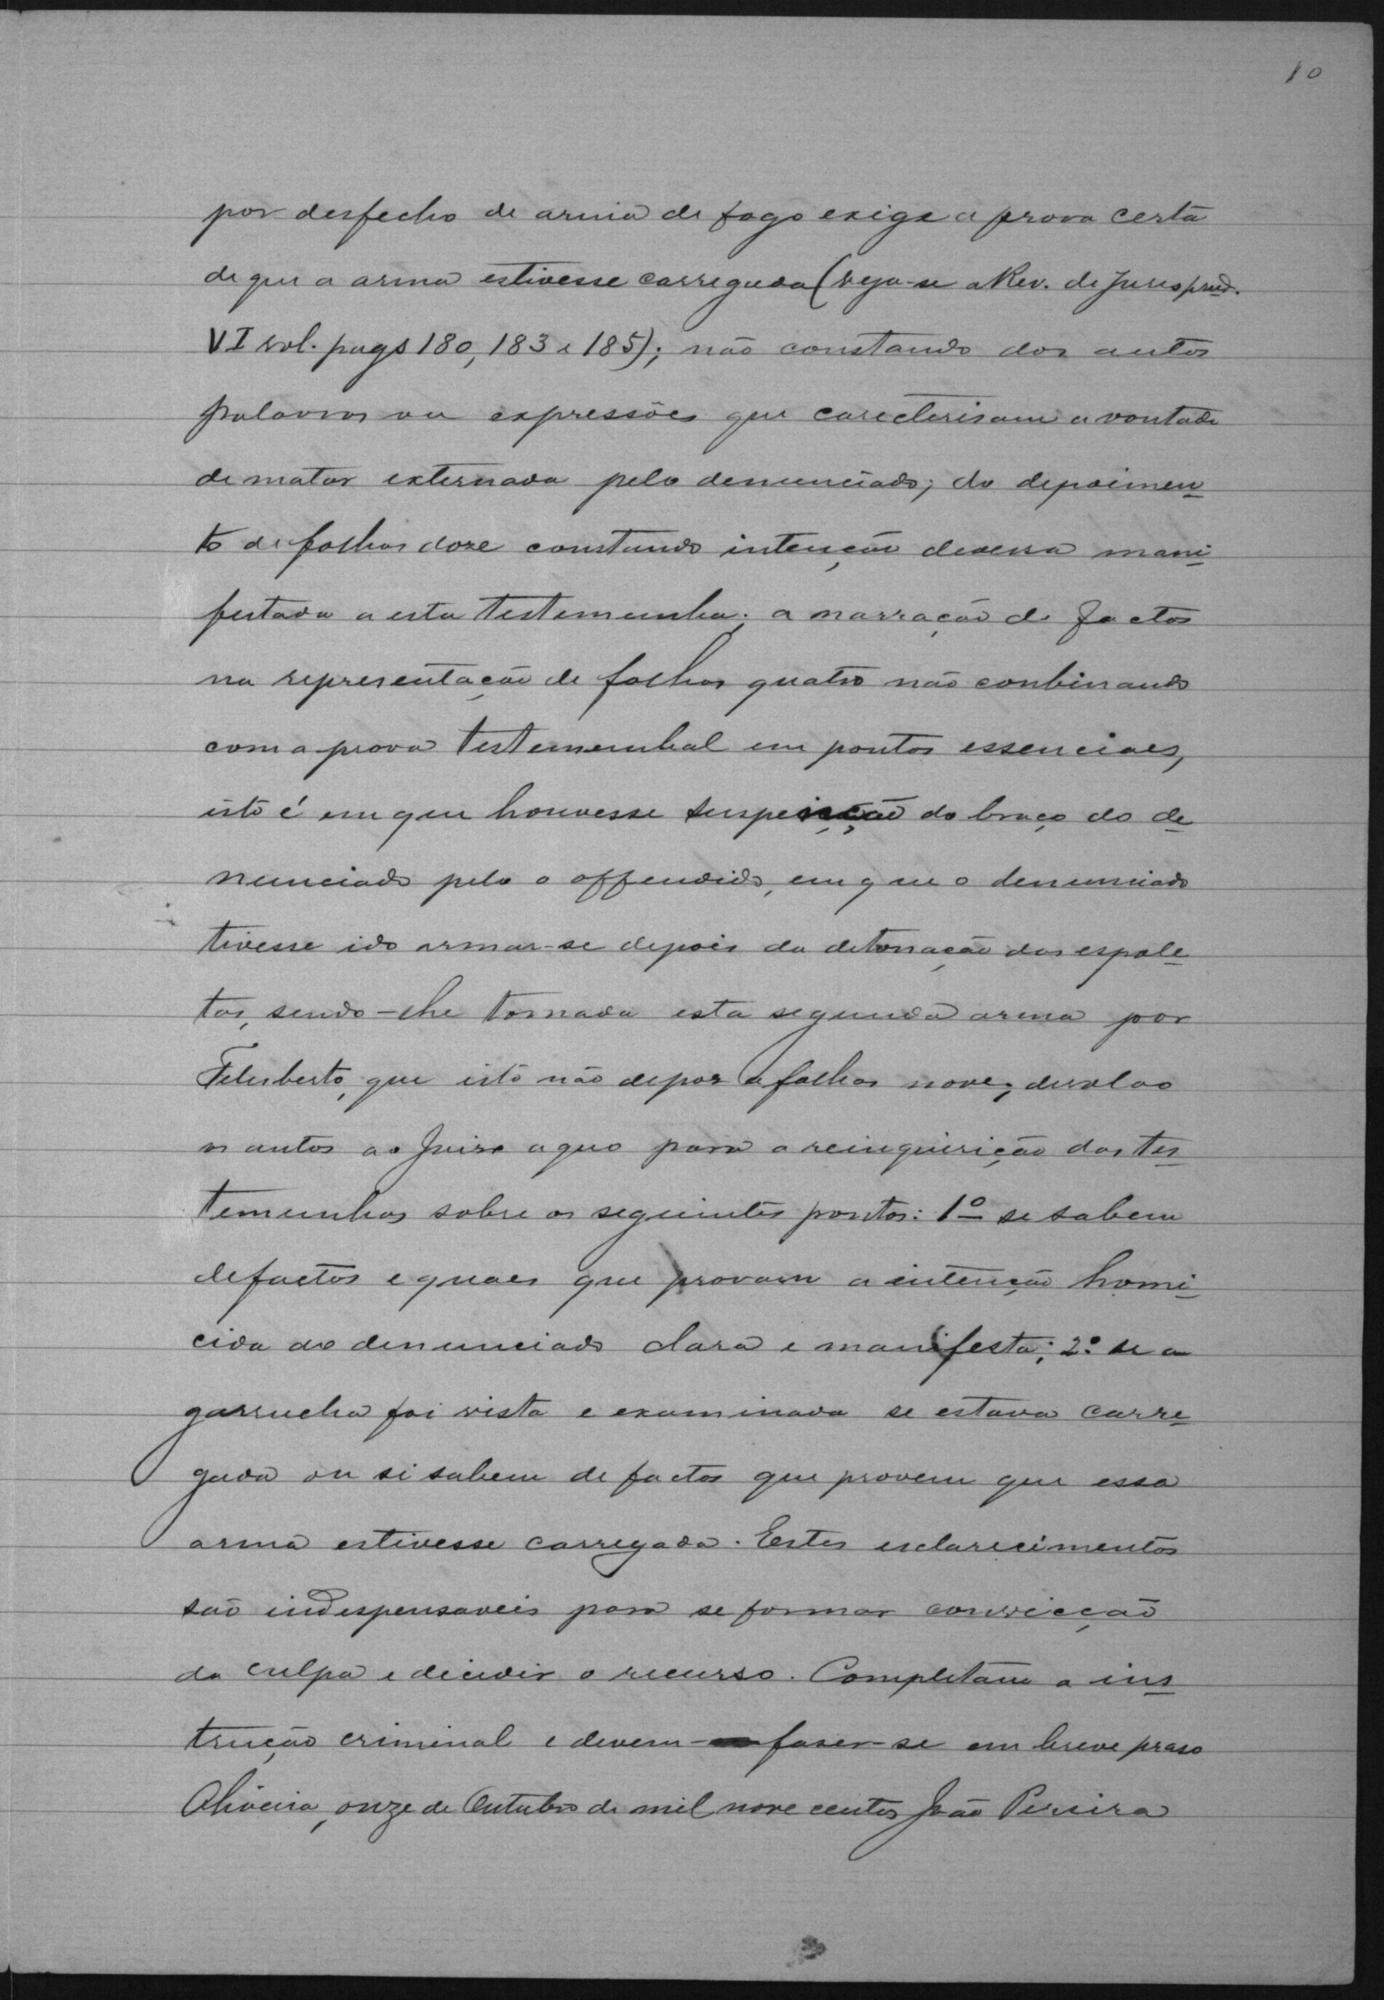 10
por desfecho de arma de fogo exige a prova certa
de que a arma estivesse carregada (veja-se a Rev. de Jurisprud.
VI vol. pags 180, 183 e 185); não constando dos autos
palavras ou expressões que carecterisam a vontade
de matar externada pelo denunciado; do depoimen-
to de folhas doze constando intenção diversa mani-
festada a esta testemunha; a narração de factos
na representação de folhas quatro não conbinando
com a prova testemunhal em pontos essenciaes,
isto é em que houvesse suspeição do braço do de-
nunciado pelo o offendido, em que o denunciado
tivesse ido armar-se depois da detonação das espole-
tas, sendo-lhe tomada esta segunda arma por
Feliberto, que isto não depoz a folhas nove; devolvo
os autos ao Juizo aquo para a reinquirição das tes-
temunhas sobre os seguintes pontos: 1º se sabem
de factos e quaes que provam a intenção homi-
cida do denunciado clara e manifesta; 2º se a
garrucha foi vista e examinada se estava carre-
gada ou si sabem de factos que provem que essa
arma estivesse carregada. Estes esclarecimentos
são indespensaveis para se formar convicção
da culpa e decidir o recurso. Completam a ins-
trucção criminal e devem fazer-se em breve praso
Oliveira, onze de Outubro de mil nove centos João Pereira